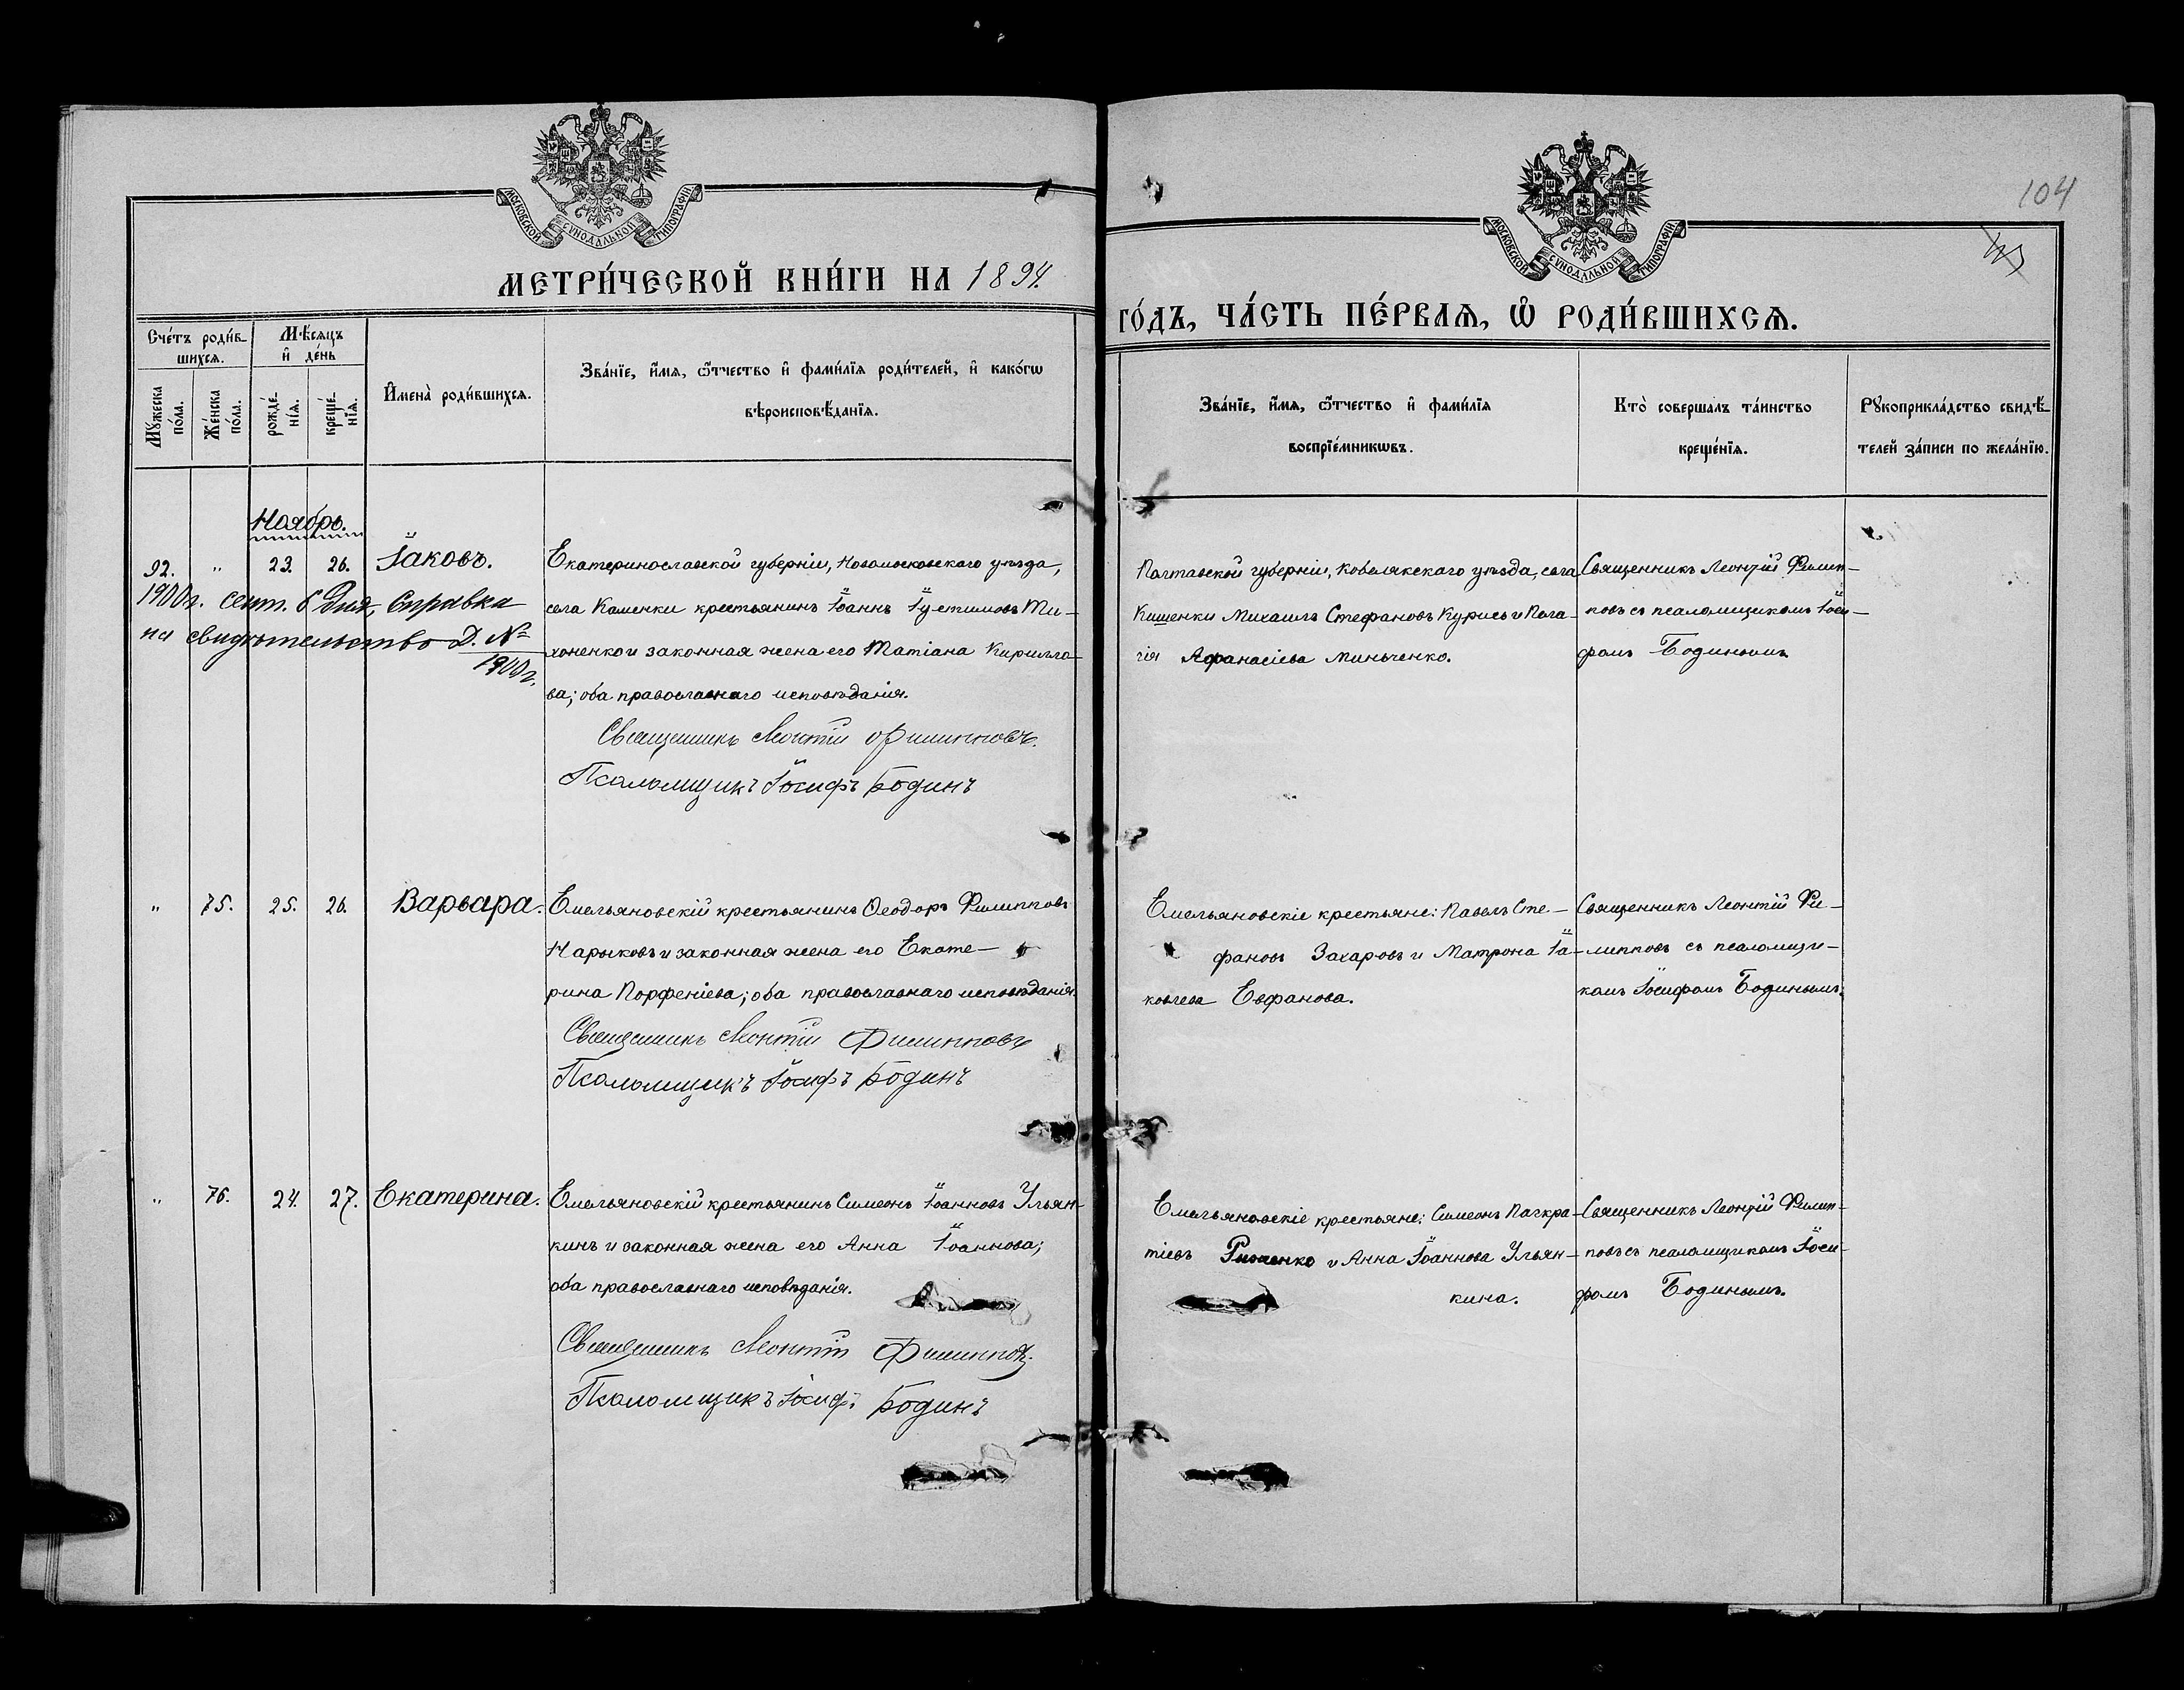 104
МОСКОВСКОЙ СѴНОДАЛЬНОЙ ТИПОГРАФІИ
МОСКОВСКОЙ СѴНОДАЛЬНОЙ ТИПОГРАФІИ
МЕТРИ́ЧЕСКОЙ КНИ́ГИ НА 1894.
ГО́ДЪ, ЧА́СТЬ ПЕ́РВАѦ, Ѡ҆ РОДИ́ВШИХСѦ.
Сче́тъ роди́в-
шихсѧ.
Мꙋ́жеска по́ла.
Же́нска по́ла.
Мѣ́сѧцъ
и҆ де́нь
рожде́-
нїѧ.
креще́-
нїѧ.
И҆мена̀ роди́вшихсѧ.
Зва́нїе, и҆́мѧ, ѻ҆́тчество и҆ фами́лїѧ роди́телей, и҆ како́гѡ
вѣроисповѣ́данїѧ.
Зва́нїе, и҆́мѧ, ѻ҆́тчество и҆ фами́лїѧ
воспрїе́мникѡвъ.
Кто̀ совершалъ та́инство
креще́нїѧ.
Рꙋкоприкла́дство свидѣ́-
телей за́писи по жела́нїю.
Ноябрь.
92. " 23. 26. Іаковъ.
1900 г. сент. 6 дня, справка
на свидѣтельство Д. №
1900 г.
Екатеринославской губерніи, Новомосковскаго уѣзда,
села Каменки крестьянинъ Іоаннъ Іустиновъ Ти-
хоненко и законная жена его Татіана Кирилло-
ва; оба православнаго исповѣданія.
Священникъ Леонтій Филипповъ.
Псаломщикъ Іосифъ Бодинъ
Полтавской губерніи, Кобелякскаго уѣзда, села
Кишенки Михаилъ Стефановъ Курись и Пела-
гія Афанасіева Минченко.
Священникъ Леонтій Филип-
повъ съ псаломщикомъ Іоси-
фомъ Бодинымъ.
" 75. 25. 26. Варвара.
Емельяновскій крестьянинъ Ѳеодоръ Филипповъ
Нарыковъ и законная жена его Екате-
рина Порфеніева; оба православнаго исповѣданія.
Священникъ Леонтій Филипповъ
Псаломщикъ Іосифъ Бодинъ
Емельяновскіе крестьяне: Павелъ Сте-
фановъ Захаровъ и Матрона Іа-
ковлева Евфанова.
Священникъ Леонтій Фи-
липповъ съ псаломщи-
комъ Іосифомъ Бодинымъ.
" 76. 24. 27. Екатерина.
Емельяновскій крестьянинъ Симеонъ Іоанновъ Ульян-
кинъ и законная жена его Анна Іоаннова;
оба православнаго исповѣданія.
Священникъ Леонтій Филипповъ.
Псаломщикъ Іосифъ Бодинъ
Емельяновскіе крестьяне: Симеонъ Панкра-
тіевъ и Анна Іоаннова Ульян-
кина.
Священникъ Леонтій Филип-
повъ съ псаломщикомъ Іоси-
фомъ Бодинымъ.